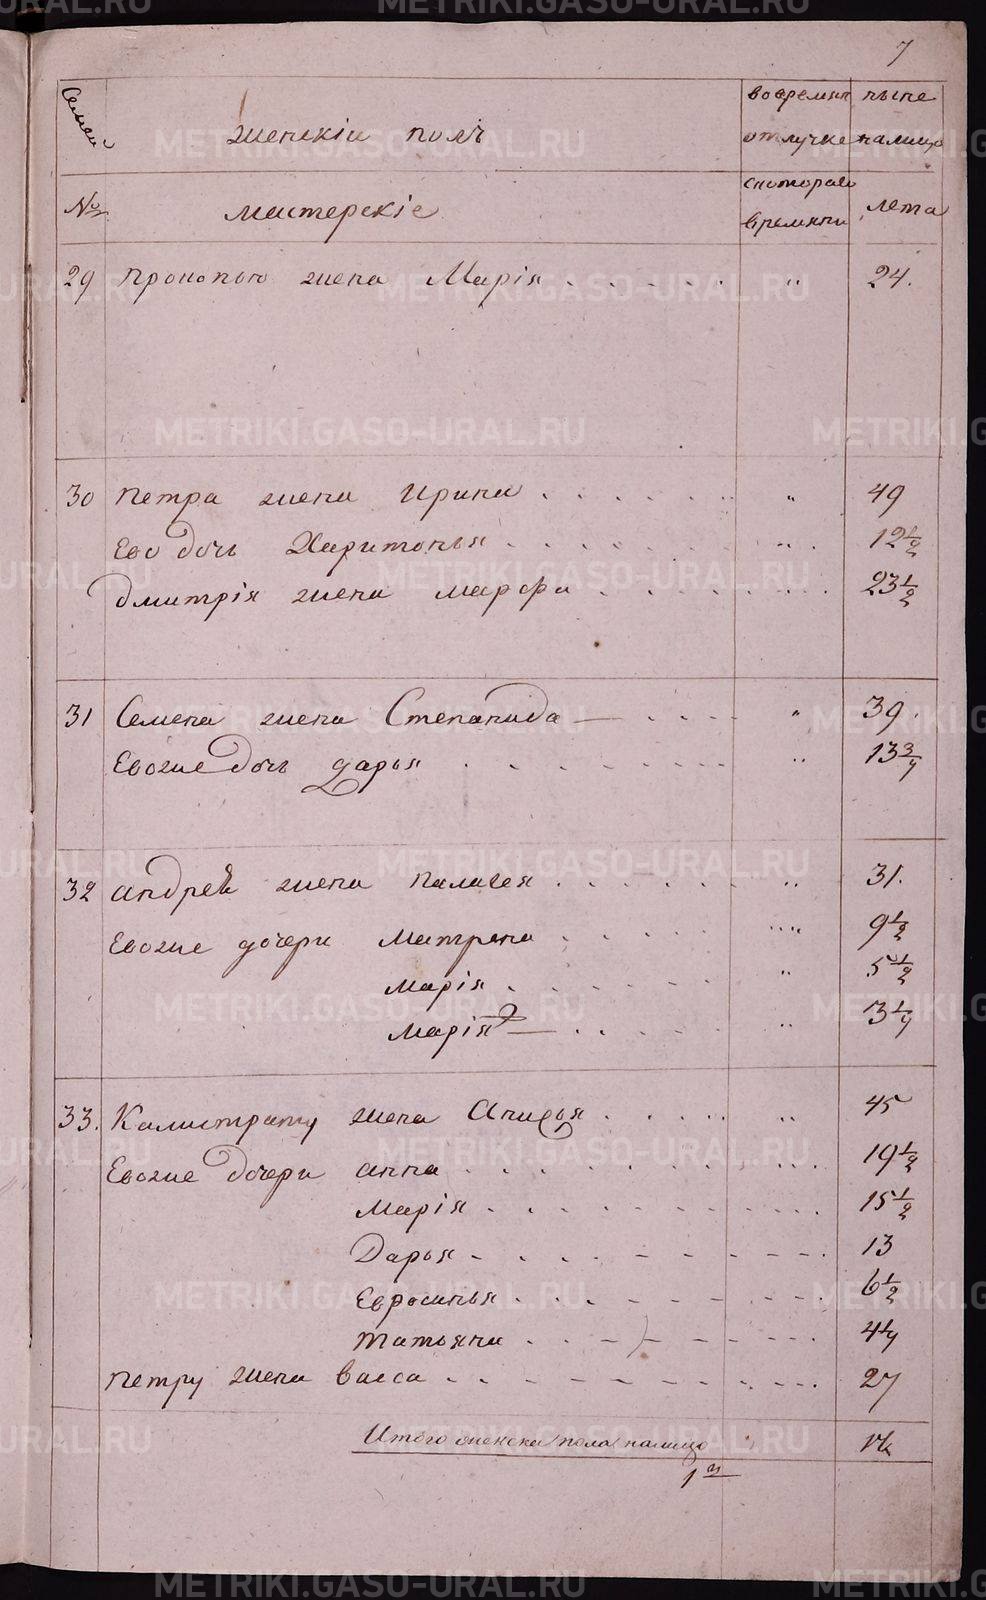 7
Семьи
женскій полъ
вовремянн
отлучке
ныне
налицо
№
мастерскіе
скотораго
времянни
лета
29 прокопью жена Марія 24.
30 петра жена Ирина 49
Ево дочь Харитонья 12 1/2
дмитрія жена марфа 23 1/2
31 Семена жена Степанида 39.
Евоже дочь дарья 13 3/4
32 андрей жена палагея 31.
Евоже дочери Матрена 9 1/2
марія 5 1/2
марія 2 3 1/4
33. Калистрату жена Анисья 45
Евоже дочери анна 19 1/2
Марія 15 1/2
Дарья 13
Евросинья 6 1/2
татьяна 4 1/4
петру жена васса 27
Итого женска пола налицо
METRIKI.GASO-URAL.RU